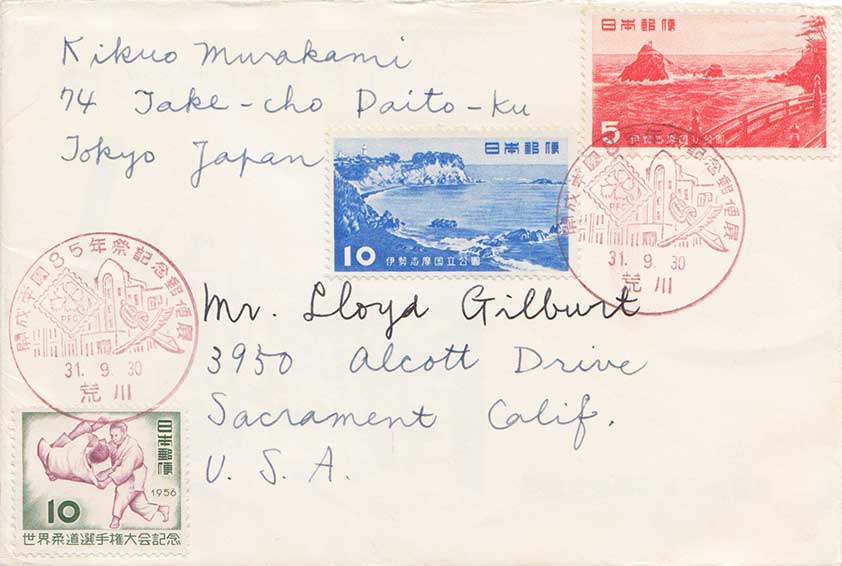 Kikuo Murakami
74 Take-cho Daito-Ku
Tokyo Japan
日本郵便
5 伊勢志摩国立公園
日本郵便
10 伊勢志摩国立公園
開成学園85年祭記念郵便展
31.9.30
荒川
Mr. Lloyd Gilburt
3950 Alcott Drive
Sacrament Calif.
U. S. A.
開成学園85年祭記念郵便展
31.9.30
荒川
日本郵便
1956
10
世界柔道選手権大会記念